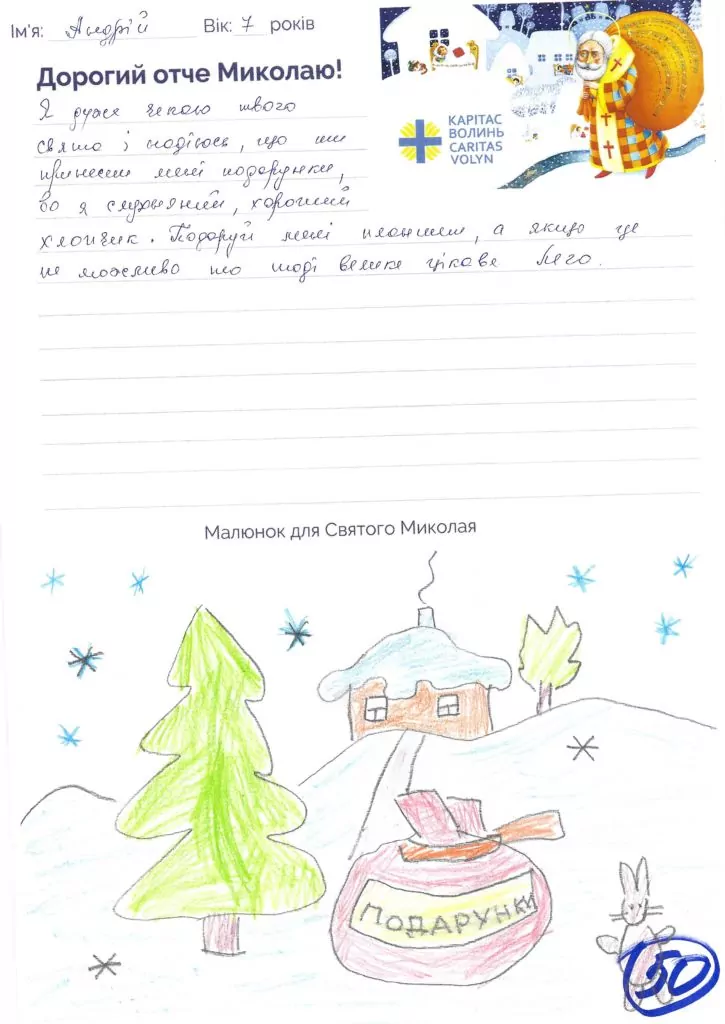 Ім'я: Андрій Вік: 7 років
Дорогий отче Миколаю!
КАРІТАС
ВОЛИНЬ
CARITAS
VOLYN
Я дуже чекаю твого
свята і надіюсь, що ти
принесеш мені подарунки,
бо я слухняний, хороший
хлопчик. Подаруй мені планшет, а якщо це
не можливо то тоді велике цікаве Лего.
Малюнок для Святого Миколая
ПОДАРУНКИ
50